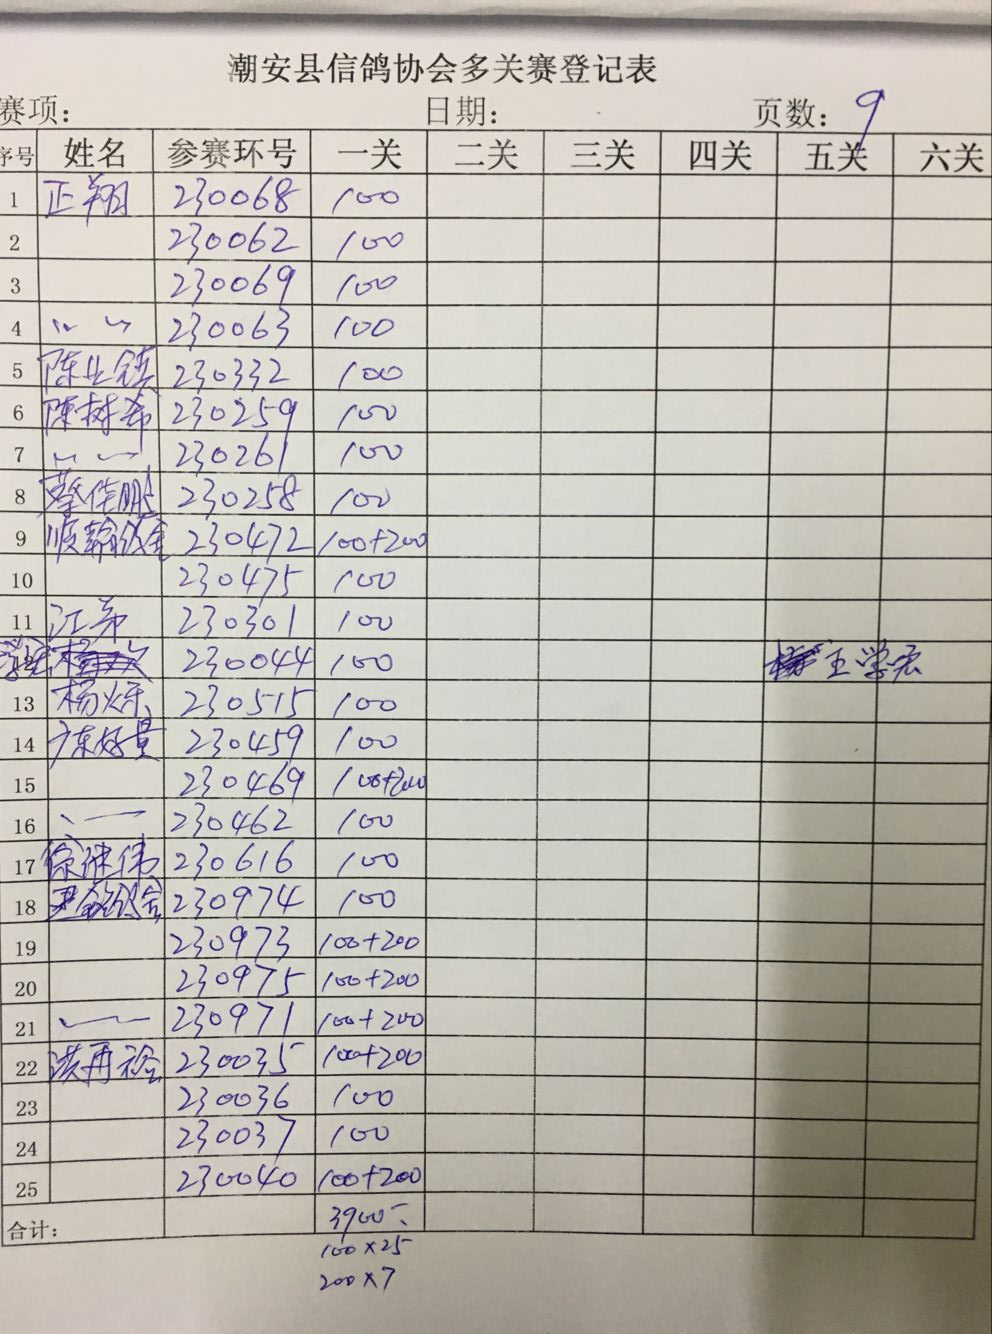 潮安县信鸽协会多关赛登记表
赛项: 日期: 页数: 9
序号 姓名 参赛环号 一关 二关 三关 四关 五关 六关
1 正翔 230068 100
2 230062 100
3 230069 100
4 〃 〃 230063 100
5 陈业镇 230332 100
6 陈树希 230259 100
7 〃 〃 230261 100
8 蔡作鹏 230258 100
9 顺翰鸽舍 230472 100+200
10 230475 100
11 江希 230301 100
12 230044 100 王学宏
13 杨烁 230515 100
14 广东好量 230459 100
15 230469 100+200
16 230462 100
17 徐继伟 230616 100
18 230974 100
19 230973 100+200
20 230975 100+200
21 230971 100+200
22 洪再裕 230035 100+200
23 230036 100
24 230037 100
25 230040 100+200
合计: 3900
100×25
200×7